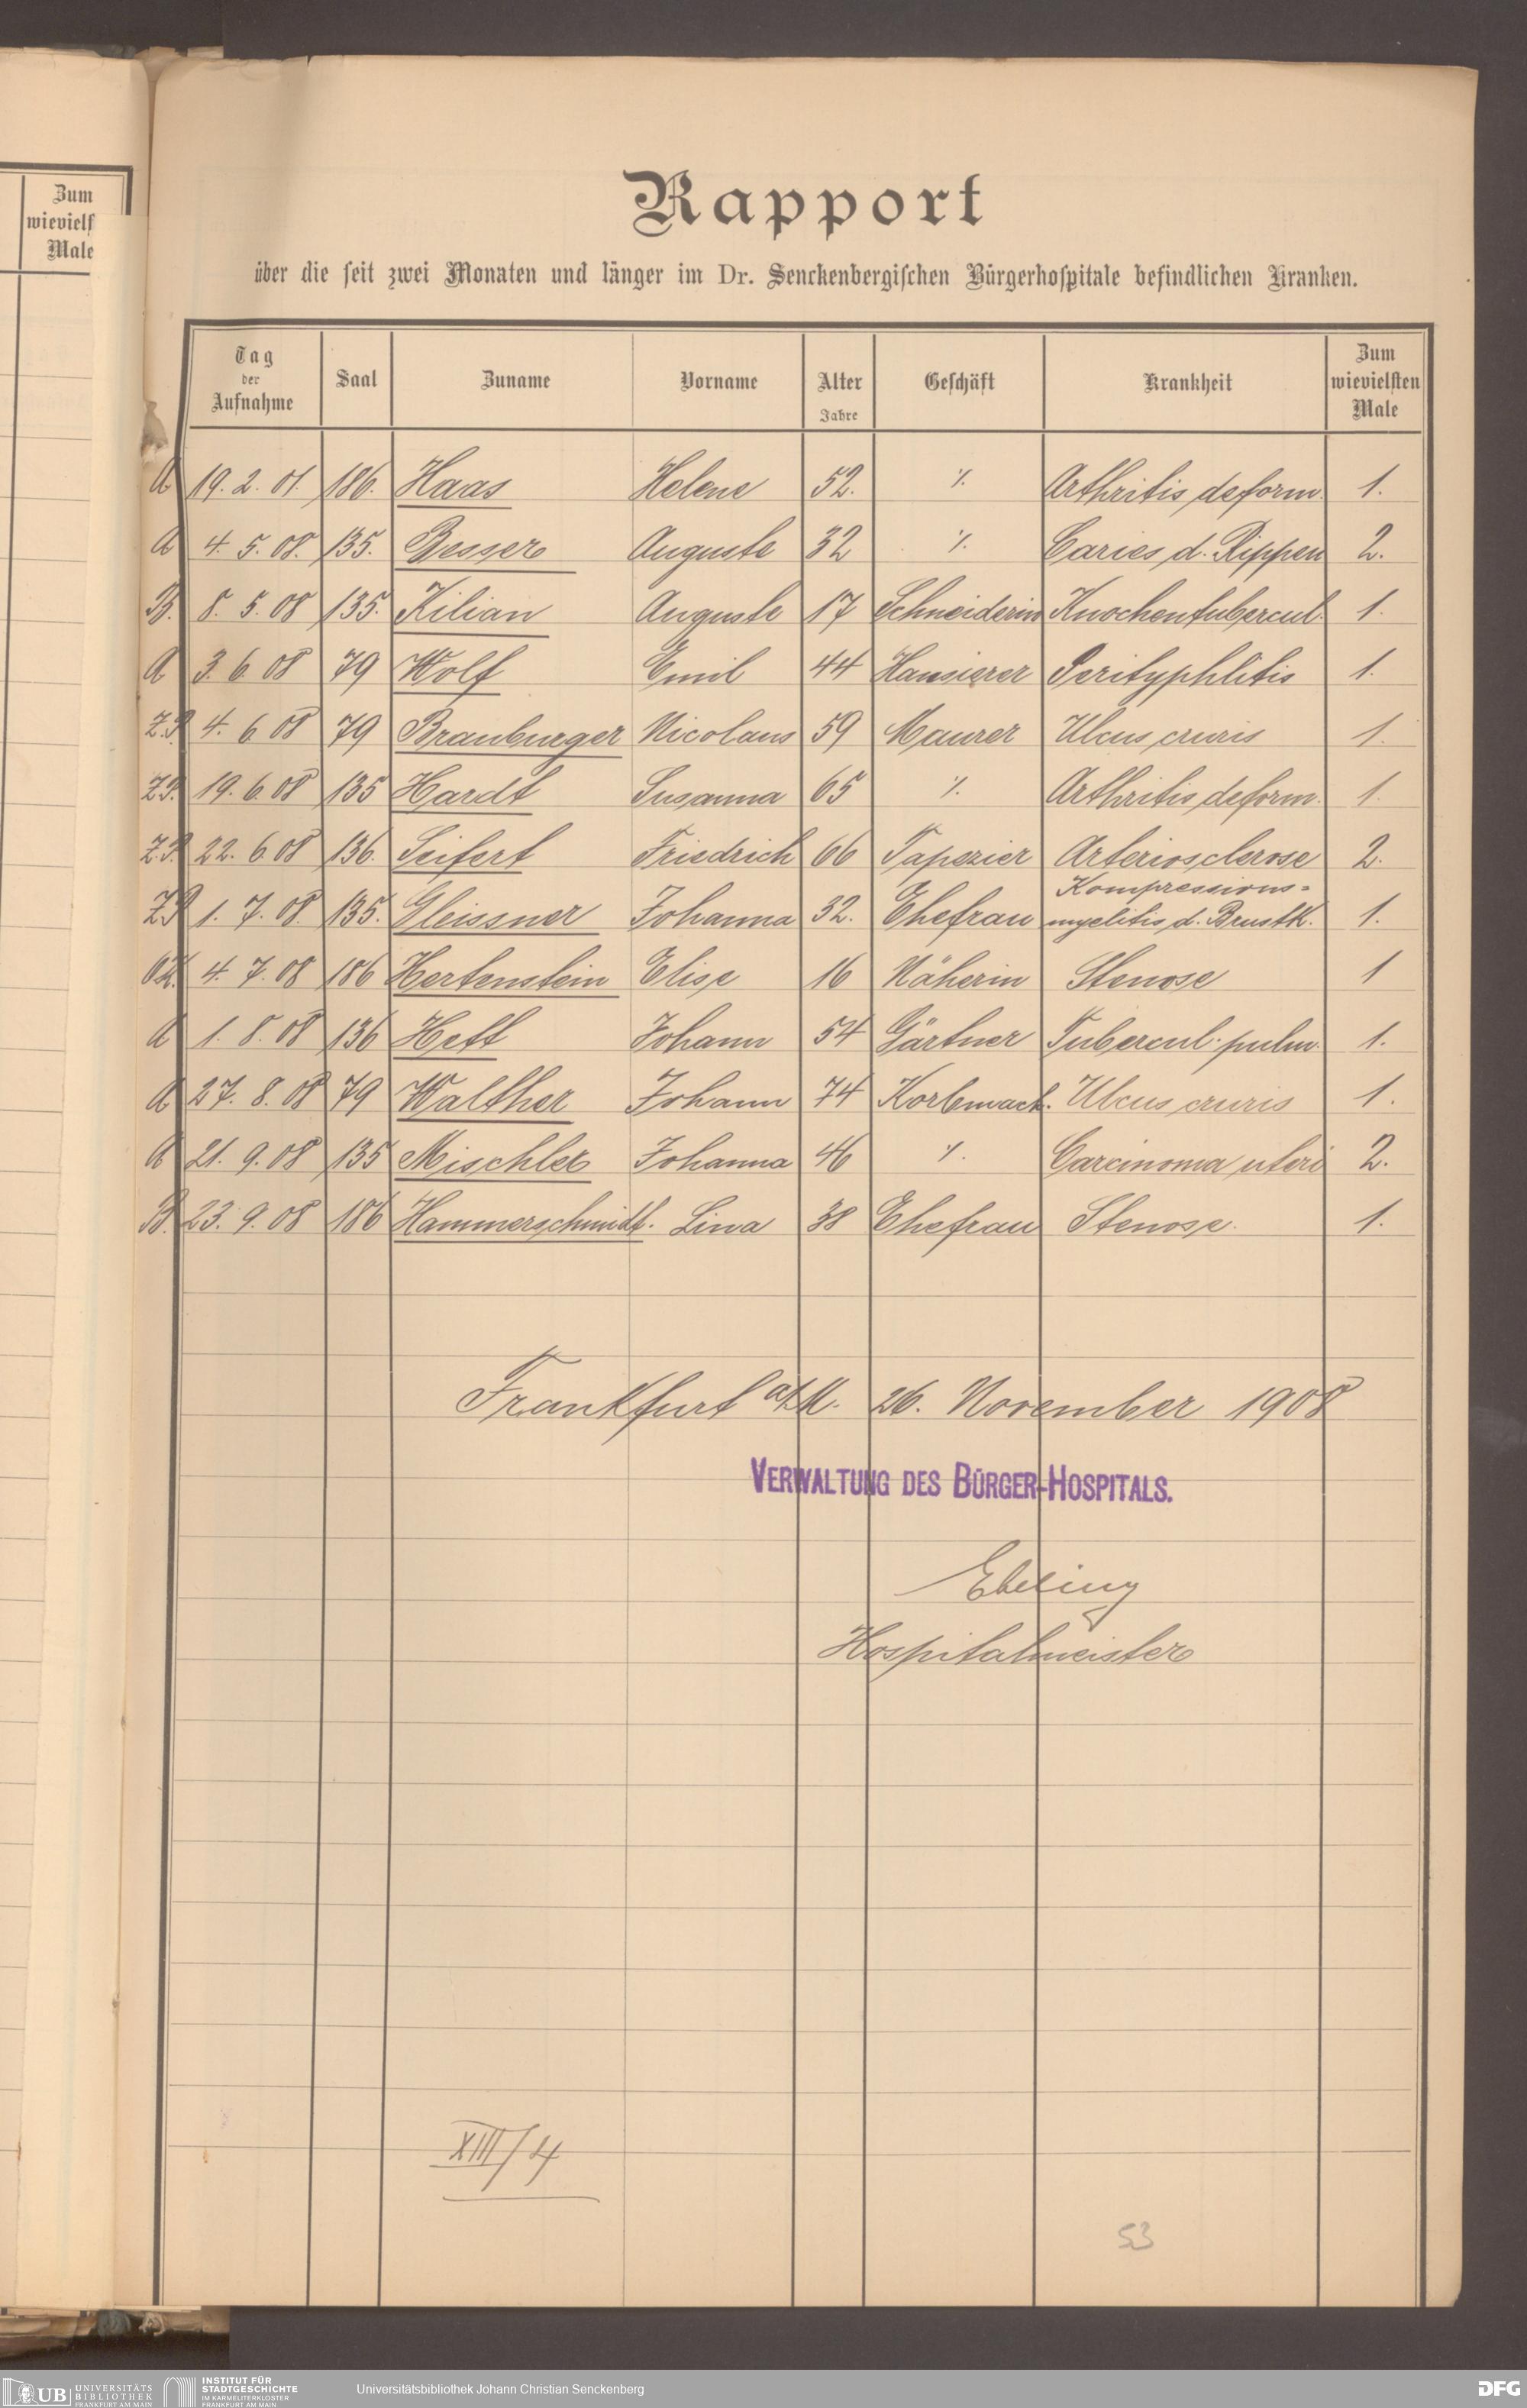 Zum
wievielſ
Male
Rapport
über die ſeit zwei Monaten und länger im Dr. Senckenbergiſchen Bürgerhoſpitale befindlichen Kranken.
Tag der Aufnahme Saal Zuname Vorname Alter Jahre Geſchäft Krankheit Zum wievielſten Male
A 19. 2. 01. 186. Haas Helene 52. ./. Arthritis deform. 1.
A 4. 5. 08. 135. Besser Auguste 32 ./. Caries d. Rippen 2.
B. 8. 5. 08 135. Kilian Auguste 17 Schneiderin Knochentubercul. 1.
A 3. 6. 08 79 Wolf Emil 44 Hausierer Perityphlitis 1.
Z.P. 4. 6 08 79 Brauburger Nicolaus 59 Maurer Ulcus cruris 1.
Z.P. 19. 6. 08 135 Hardt Susanna 65 ./. Arthritis deform. 1.
Z.P. 22. 6. 08 136. Seifert Friedrich 66 Tapezier Arteriosclerose 2.
Z.P 1. 7. 08. 135. Gleissner Johanna 32. Ehefrau Kompressions-
myelitis d. Brustk. 1.
4. 7. 08 186 Hertenstein Elise 16 Näherin Stenose 1
A 1. 8. 08 136 Heft Johann 54 Gärtner Tubercul. pulm. 1.
A 27. 8. 08 79 Walther Johann 74 Korbmach. Ulcus cruris 1.
A 21. 9. 08 135 Mischler Johanna 46 ./. Carcinoma uteri 2.
B. 23. 9. 08 186 Hammerschmidt. Lina 38 Ehefrau Stenose. 1.
Frankfurt a/M. 26. November 1908
VERWALTUNG DES BÜRGER-HOSPITALS.
Ebeling
Hospitalmeister
XIII/4
53
UB UNIVERSITÄTS
BIBLIOTHEK
FRANKFURT AM MAIN
INSTITUT FÜR
STADTGESCHICHTE
IM KARMELITERKLOSTER
FRANKFURT AM MAIN
Universitätsbibliothek Johann Christian Senckenberg
DFG